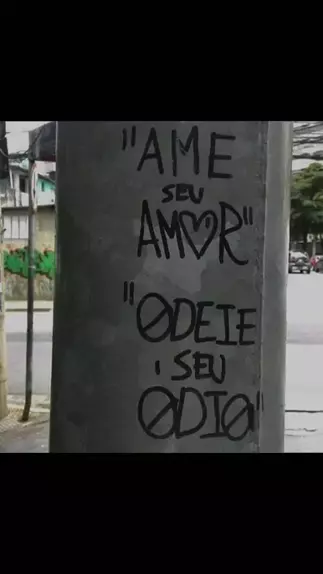 "AME
SEU
AMOR"
"ODEIE
SEU
ODIO"